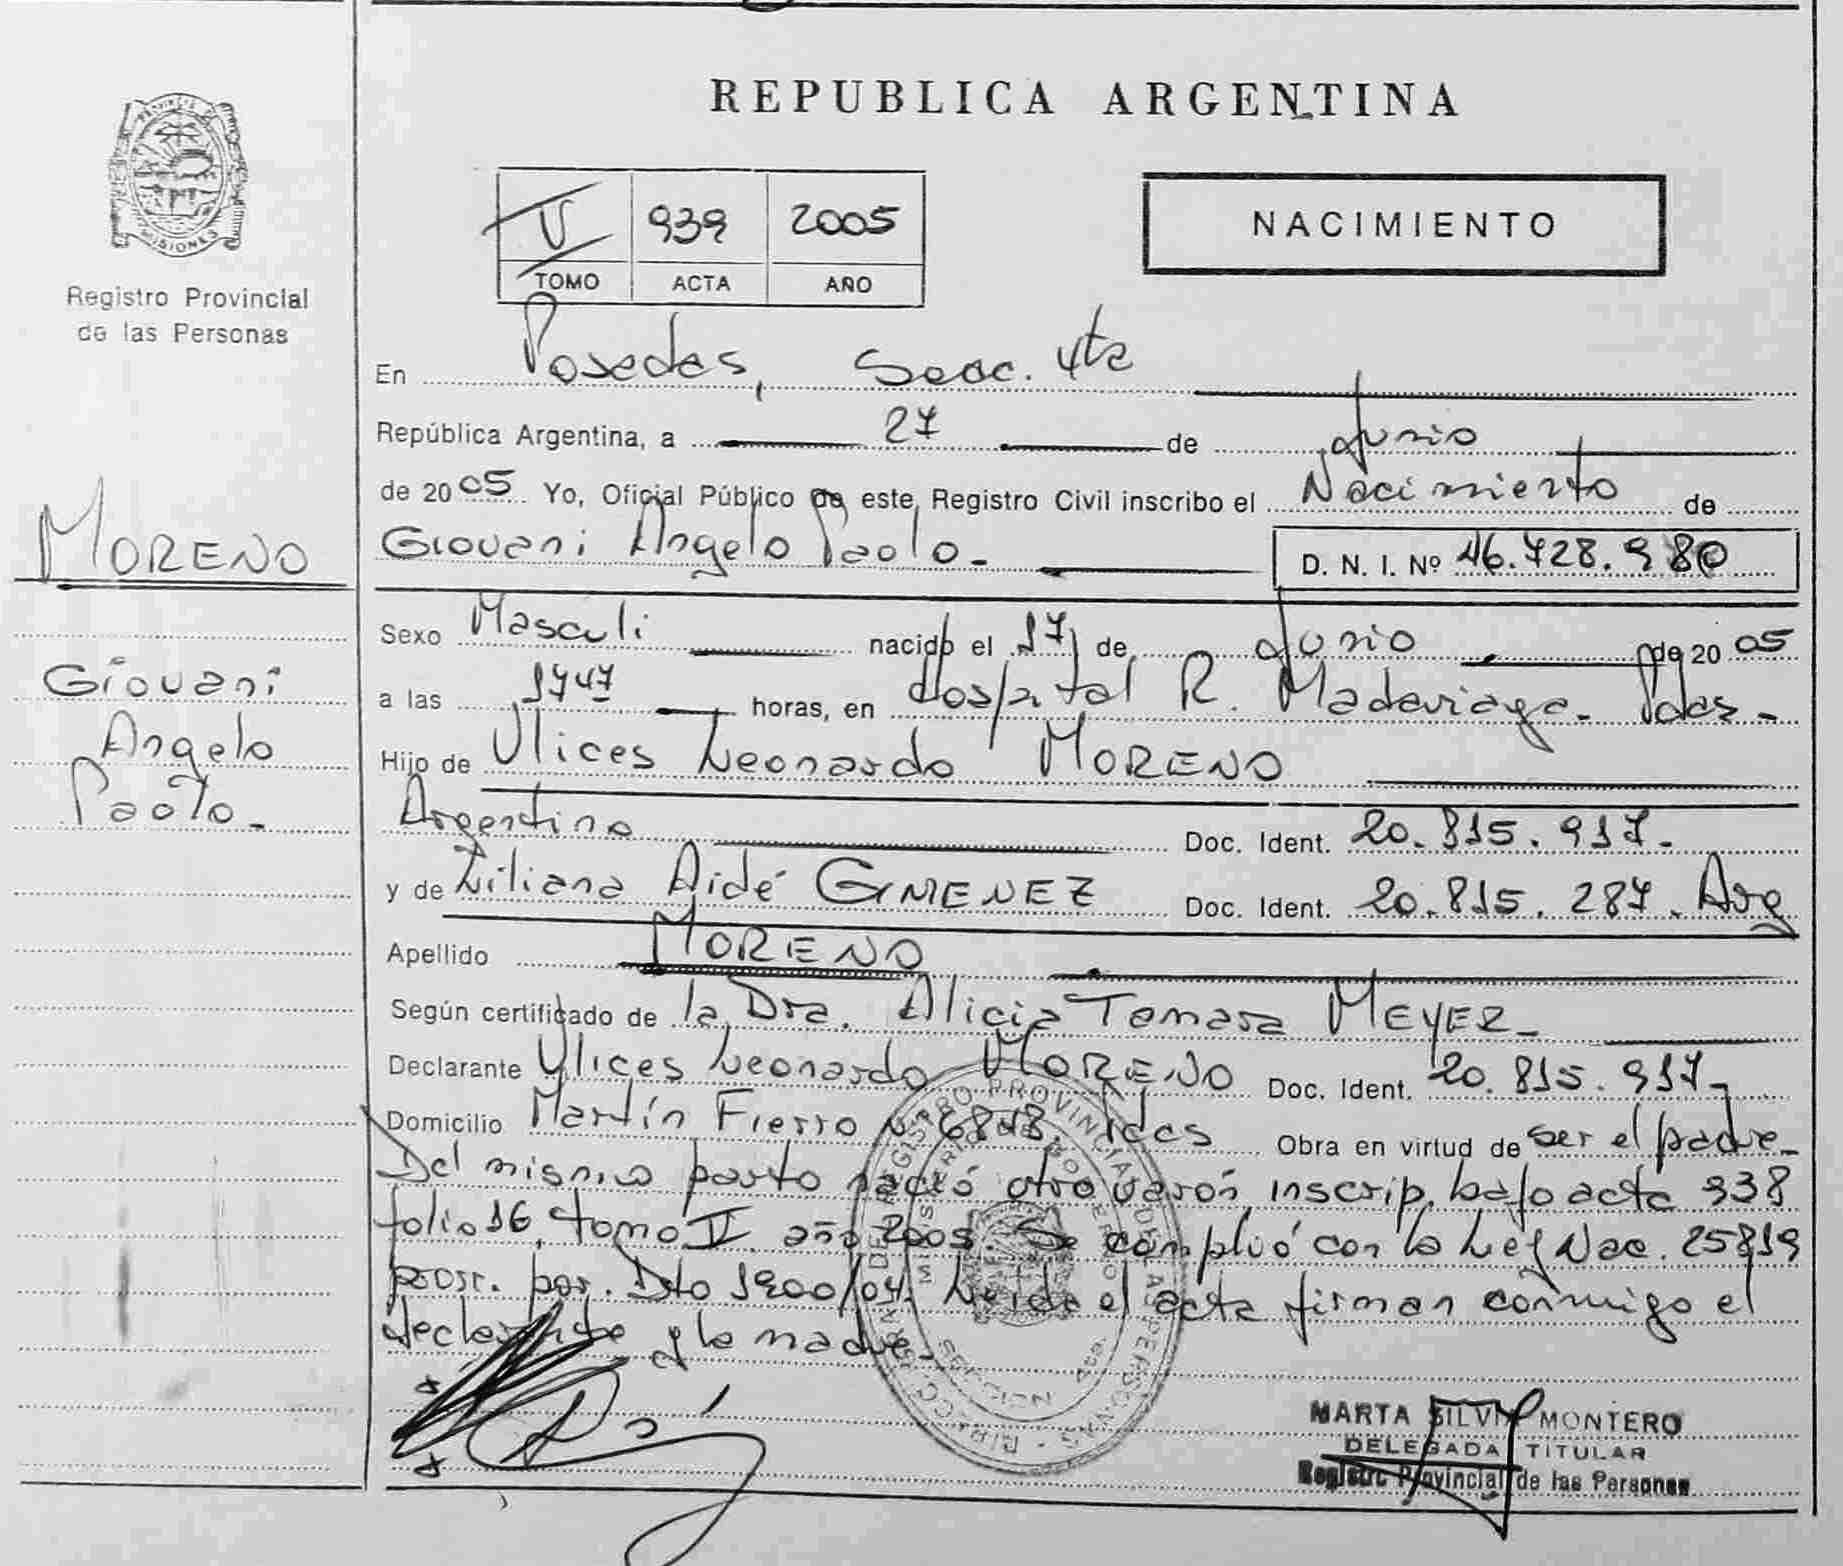 PROVINCIA DE
MISIONES
Registro Provincial
de las Personas
MORENO
Giovani
Angelo
Paolo.
REPUBLICA ARGENTINA
V 939 2005
TOMO ACTA AÑO
NACIMIENTO
En Posadas, Secc. 4ta
República Argentina, a 27 de Junio
de 2005 Yo, Oficial Público de este Registro Civil inscribo el Nacimiento de
Giovani Angelo Paolo.- D. N. I. Nº 46.728.980
Sexo Masculi nacido el 17 de Junio de 2005
a las 1747 horas, en Hospital R. Madariaga. Pdas.-
Hijo de Ulices Leonardo MORENO
Argentino Doc. Ident. 20.815.917.-
y de Liliana Aidé GIMENEZ Doc. Ident. 20.815.287. Arg
Apellido MORENO
Según certificado de la Dra. Alicia Tomasa MEYER-
Declarante Ulices Leonardo MORENO Doc. Ident. 20.815.917-
Domicilio Martín Fierro Nº 6848, Pdas Obra en virtud de ser el padre.-
Del mismo parto nació otro varón inscrip. bajo acta 938
folio 16, tomo V año 2005. Se cumplió con la Ley Nac. 25819
prorr. por. Dto 1900/04. Leída el acta firman conmigo el
declarante y la madre.
REGISTRO PROVINCIAL DE LAS PERSONAS
MINISTERIO DE GOBIERNO
MARTA SILVIA MONTERO
DELEGADA TITULAR
Registro Provincial de las Personas